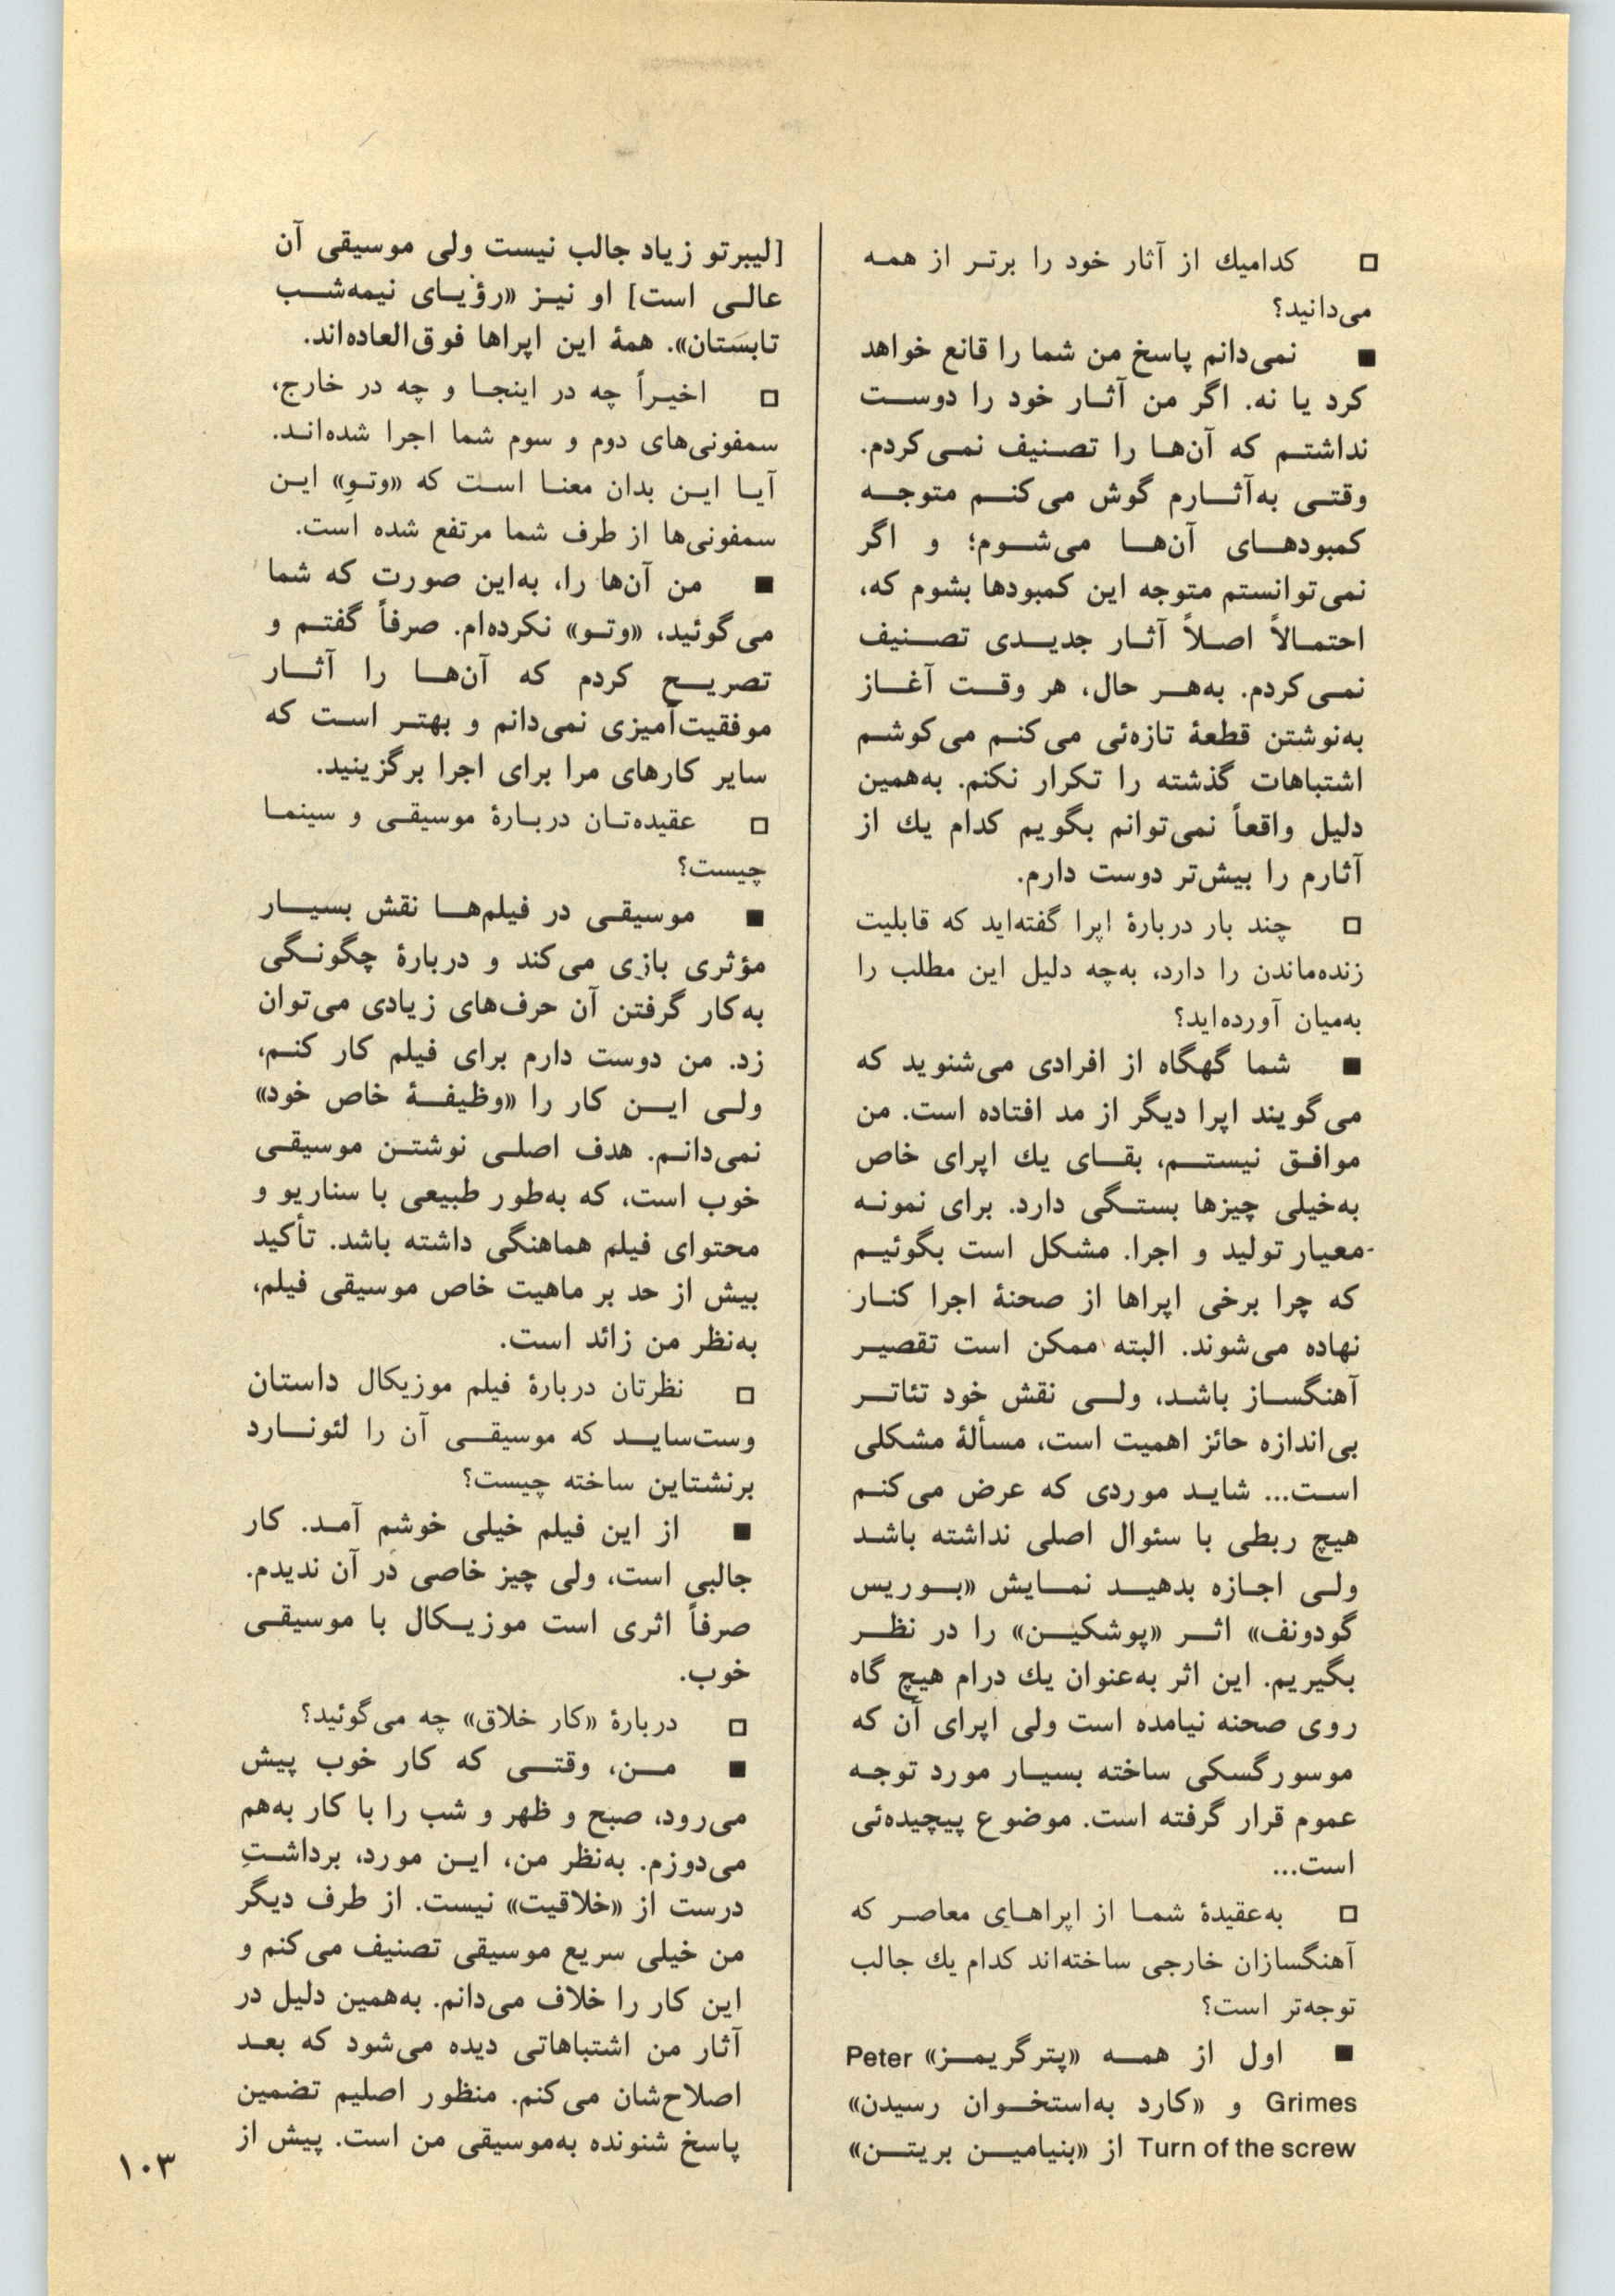 □ کدامیك از آثار خود را برتر از همه
می‌دانید؟
■ نمی‌دانم پاسخ من شما را قانع خواهد
کرد یا نه. اگر من آثار خود را دوست
نداشتم که آن‌ها را تصنیف نمی‌کردم.
وقتی به‌آثارم گوش می‌کنم متوجه
کمبودهای آن‌ها می‌شوم؛ و اگر
نمی‌توانستم متوجه این کمبودها بشوم که،
احتمالاً اصلاً آثار جدیدی تصنیف
نمی‌کردم. به‌هر حال، هر وقت آغاز
به‌نوشتن قطعهٔ تازه‌ئی می‌کنم می‌کوشم
اشتباهات گذشته را تکرار نکنم. به‌همین
دلیل واقعاً نمی‌توانم بگویم کدام یك از
آثارم را بیش‌تر دوست دارم.
□ چند بار دربارهٔ اپرا گفته‌اید که قابلیت
زنده‌ماندن را دارد، به‌چه دلیل این مطلب را
به‌میان آورده‌اید؟
■ شما گهگاه از افرادی می‌شنوید که
می‌گویند اپرا دیگر از مد افتاده است. من
موافق نیستم، بقای یك اپرای خاص
به‌خیلی چیزها بستگی دارد. برای نمونه
معیار تولید و اجرا. مشکل است بگوئیم
که چرا برخی اپراها از صحنهٔ اجرا کنار
نهاده می‌شوند. البته ممکن است تقصیر
آهنگساز باشد، ولی نقش خود تئاتر
بی‌اندازه حائز اهمیت است، مسألهٔ مشکلی
است... شاید موردی که عرض می‌کنم
هیچ ربطی با سئوال اصلی نداشته باشد
ولی اجازه بدهید نمایش «بوریس
گودونف» اثر «پوشکین» را در نظر
بگیریم. این اثر به‌عنوان یك درام هیچ گاه
روی صحنه نیامده است ولی اپرای آن که
موسورگسکی ساخته بسیار مورد توجه
عموم قرار گرفته است. موضوع پیچیده‌ئی
است...
□ به‌عقیدهٔ شما از اپراهای معاصر که
آهنگسازان خارجی ساخته‌اند کدام یك جالب
توجه‌تر است؟
■ اول از همه «پترگریمز» Peter
Grimes و «کارد به‌استخوان رسیدن»
Turn of the screw از «بنیامین بریتن»
[لیبرتو زیاد جالب نیست ولی موسیقی آن
عالی است] او نیز «رؤیای نیمه‌شب
تابستان». همهٔ این اپراها فوق‌العاده‌اند.
□ اخیراً چه در اینجا و چه در خارج،
سمفونی‌های دوم و سوم شما اجرا شده‌اند.
آیا این بدان معنا است که «وتوِ» این
سمفونی‌ها از طرف شما مرتفع شده است.
■ من آن‌ها را، به‌این صورت که شما
می‌گوئید، «وتو» نکرده‌ام. صرفاً گفتم و
تصریح کردم که آن‌ها را آثار
موفقیت‌آمیزی نمی‌دانم و بهتر است که
سایر کارهای مرا برای اجرا برگزینید.
□ عقیده‌تان دربارهٔ موسیقی و سینما
چیست؟
■ موسیقی در فیلم‌ها نقش بسیار
مؤثری بازی می‌کند و دربارهٔ چگونگی
به‌کار گرفتن آن حرف‌های زیادی می‌توان
زد. من دوست دارم برای فیلم کار کنم،
ولی این کار را «وظیفهٔ خاص خود»
نمی‌دانم. هدف اصلی نوشتن موسیقی
خوب است، که به‌طور طبیعی با سناریو و
محتوای فیلم هماهنگی داشته باشد. تأکید
بیش از حد بر ماهیت خاص موسیقی فیلم،
به‌نظر من زائد است.
□ نظرتان دربارهٔ فیلم موزیکال داستان
وست‌ساید که موسیقی آن را لئونارد
برنشتاین ساخته چیست؟
■ از این فیلم خیلی خوشم آمد. کار
جالبی است، ولی چیز خاصی در آن ندیدم.
صرفاً اثری است موزیکال با موسیقی
خوب.
□ دربارهٔ «کار خلاق» چه می‌گوئید؟
■ من، وقتی که کار خوب پیش
می‌رود، صبح و ظهر و شب را با کار به‌هم
می‌دوزم. به‌نظر من، این مورد، برداشتِ
درست از «خلاقیت» نیست. از طرف دیگر
من خیلی سریع موسیقی تصنیف می‌کنم و
این کار را خلاف می‌دانم. به‌همین دلیل در
آثار من اشتباهاتی دیده می‌شود که بعد
اصلاح‌شان می‌کنم. منظور اصلیم تضمین
پاسخ شنونده به‌موسیقی من است. پیش از
۱۰۳